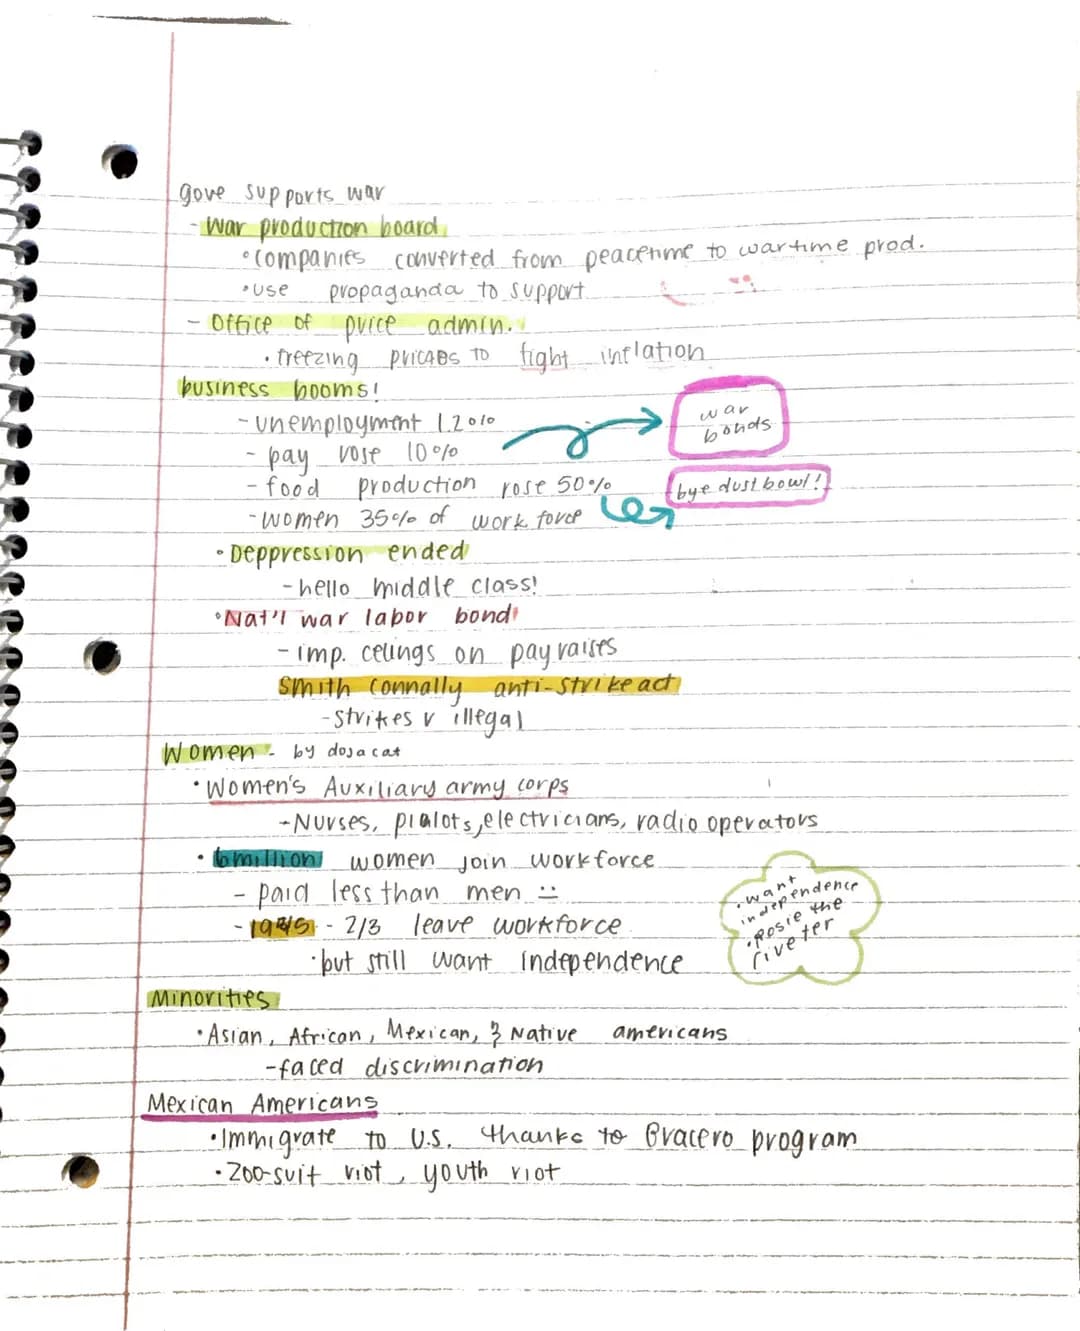 gove supports war
- War production board
• companies converted from peacetime to wartime prod.
• use propaganda to support
- Office of price admin.
• freezing prices to fight inflation
business booms!
- unemployment 1.2%
war bonds
- pay rose 10%
- food production rose 50%
bye dust bowl!
- women 35% of work force
• Deppression ended
- hello middle class!
• Nat'l war labor bond
- imp. celings on pay raises
Smith Connally anti-strike act
- strikes r illegal
Women - by doja cat
• Women's Auxiliary army corps
- Nurses, pialots, electricians, radio operators
• 6 million women join workforce
- paid less than men :(
- 1945 - 2/3 leave workforce
• but still want independence
• want independence
• Rosie the riveter
Minorities
• Asian, African, Mexican, & Native americans
- faced discrimination
Mexican Americans
• Immigrate to U.S. thanks to Bracero program
• Zoo-suit riot, youth riot